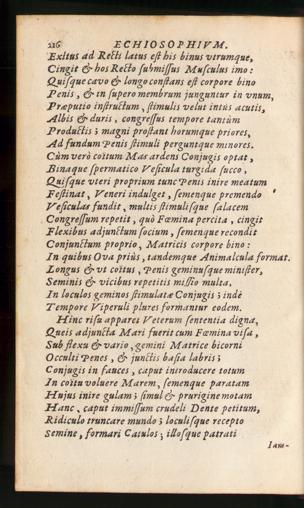 216 ECHIOSOPHIVM.
Exitus ad Recti latus est his binus vtrumque,
Cingit & hos Recto submissus Musculus imo:
Quisque cavo & longo constans est corpore bino
Penis, & in supero membrum junguntur in vnum,
Præputio instructum, stimulis velut intùs acutis,
Albis & duris, congressus tempore tantùm
Productis; magni prostant horumque priores,
Ad fundum Penis stimuli perguntque minores.
Cùm verò coïtum Mas ardens Conjugis optat,
Binaque spermatico Vesicula turgida succo,
Quisque vteri proprium tunc Penis inire meatum
Festinat, Veneri indulget, semenque premendo
Vesiculas fundit, multis stimulisque salacem
Congressum repetit, quò Fœmina percita, cingit
Flexibus adjunctum socium, semenque recondit
Conjunctum proprio, Matricis corpore bino:
In quibus Ova priùs, tandemque Animalcula format.
Longus & vt coïtus, Penis geminusque minister,
Seminis & vicibus repetitis missio multa,
In loculos geminos stimulatæ Conjugis; indè
Tempore Viperuli plures formantur eodem.
Hinc risu appares Veterum sententia digna,
Queis adjuncta Mari fuerit cum Fœmina visa,
Sub flexu & vario, gemini Matrice bicorni
Occulti Penes, & junctis basia labris;
Conjugis in fauces, caput introducere totum
In coïtu voluere Marem, semenque paratam
Hujus inire gulam; simul & prurigine motam
Hanc, caput immissum crudeli Dente petitum,
Ridiculo truncare mundo; loculisque recepto
Semine, formari Catulos; illosque patrati
Iam-